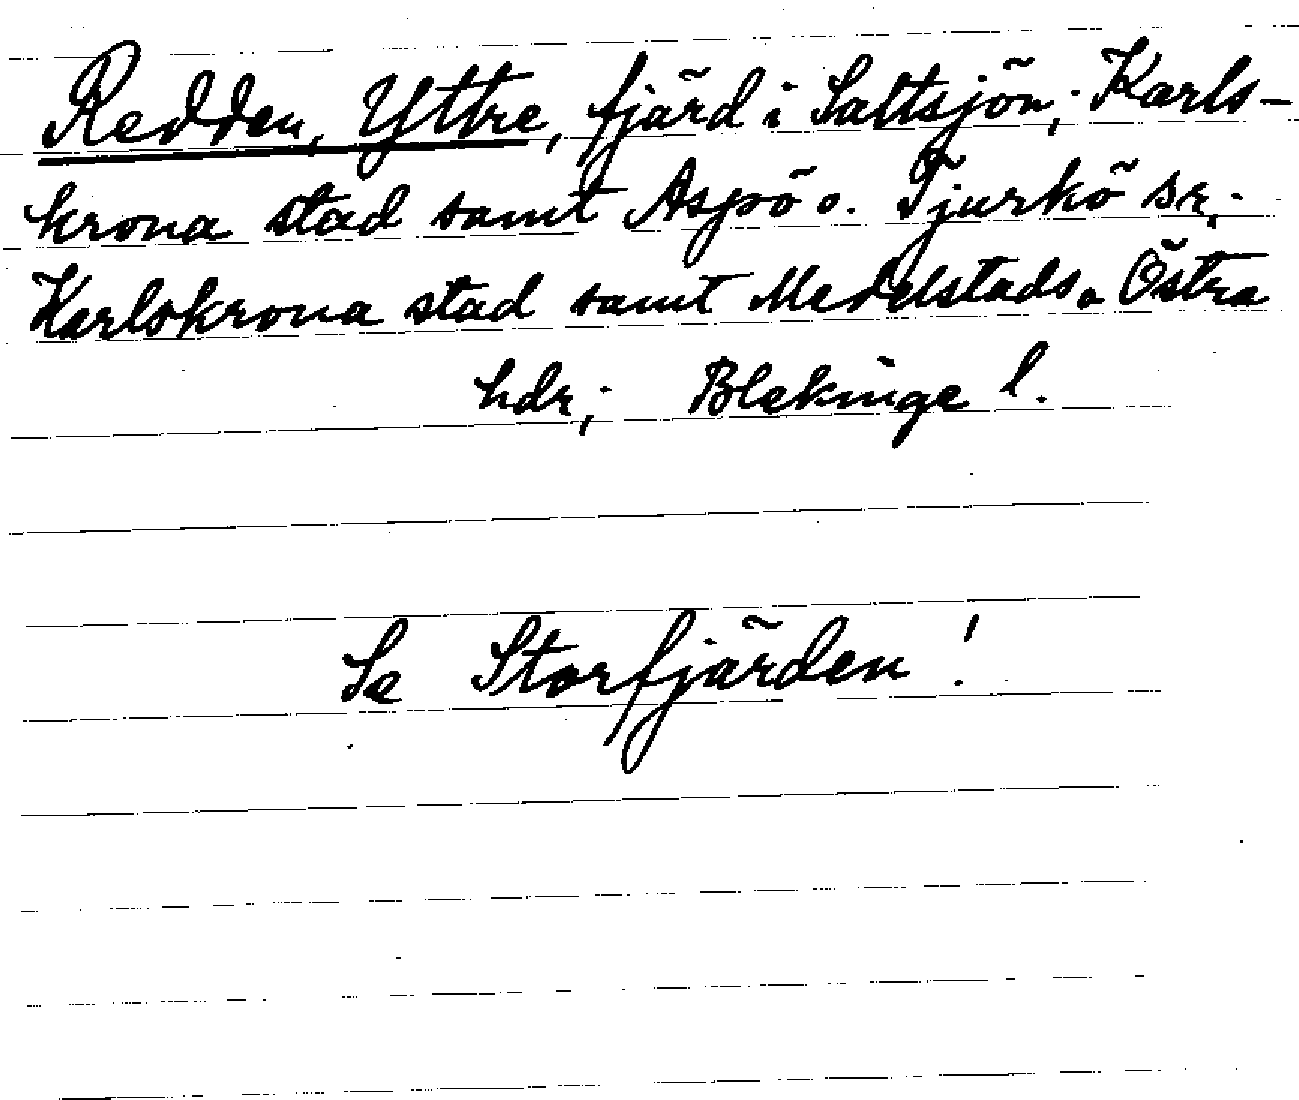 Redden, Yttre, fjärd i Saltsjön; Karls-
krona stad samt Aspö o. Tjurkö sr;
Karlskrona stad samt Medelstads o Östra
hdr; Blekinge l.
Se Storfjärden!